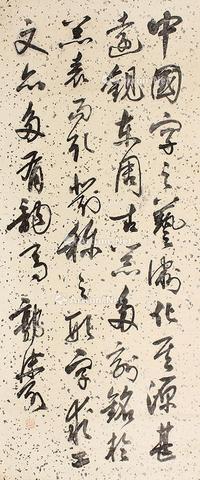 中國字之藝術化其源甚
遠觀東周古器多刻銘於
器表而對稱之形字求工
文亦多有韻焉 郭沫若